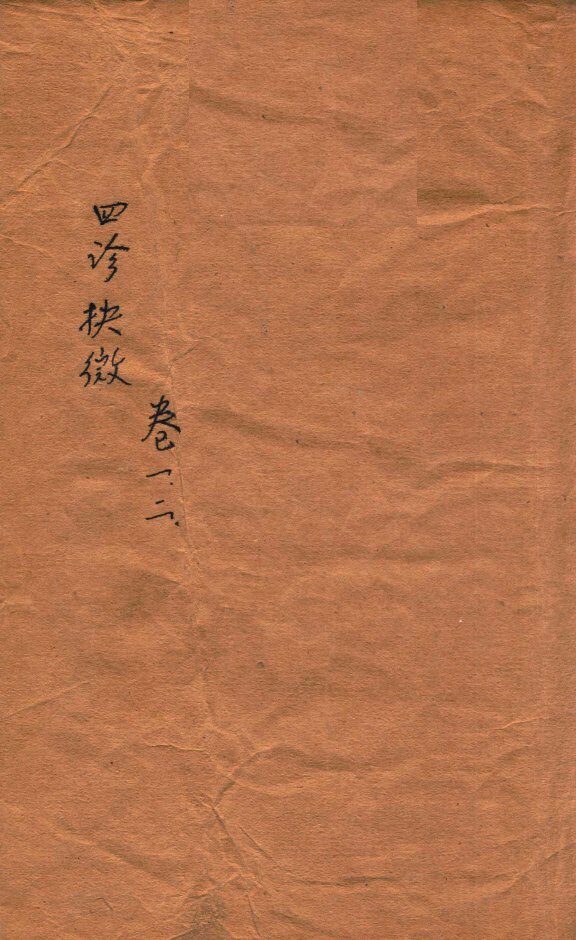 四诊抉微
卷一.二.